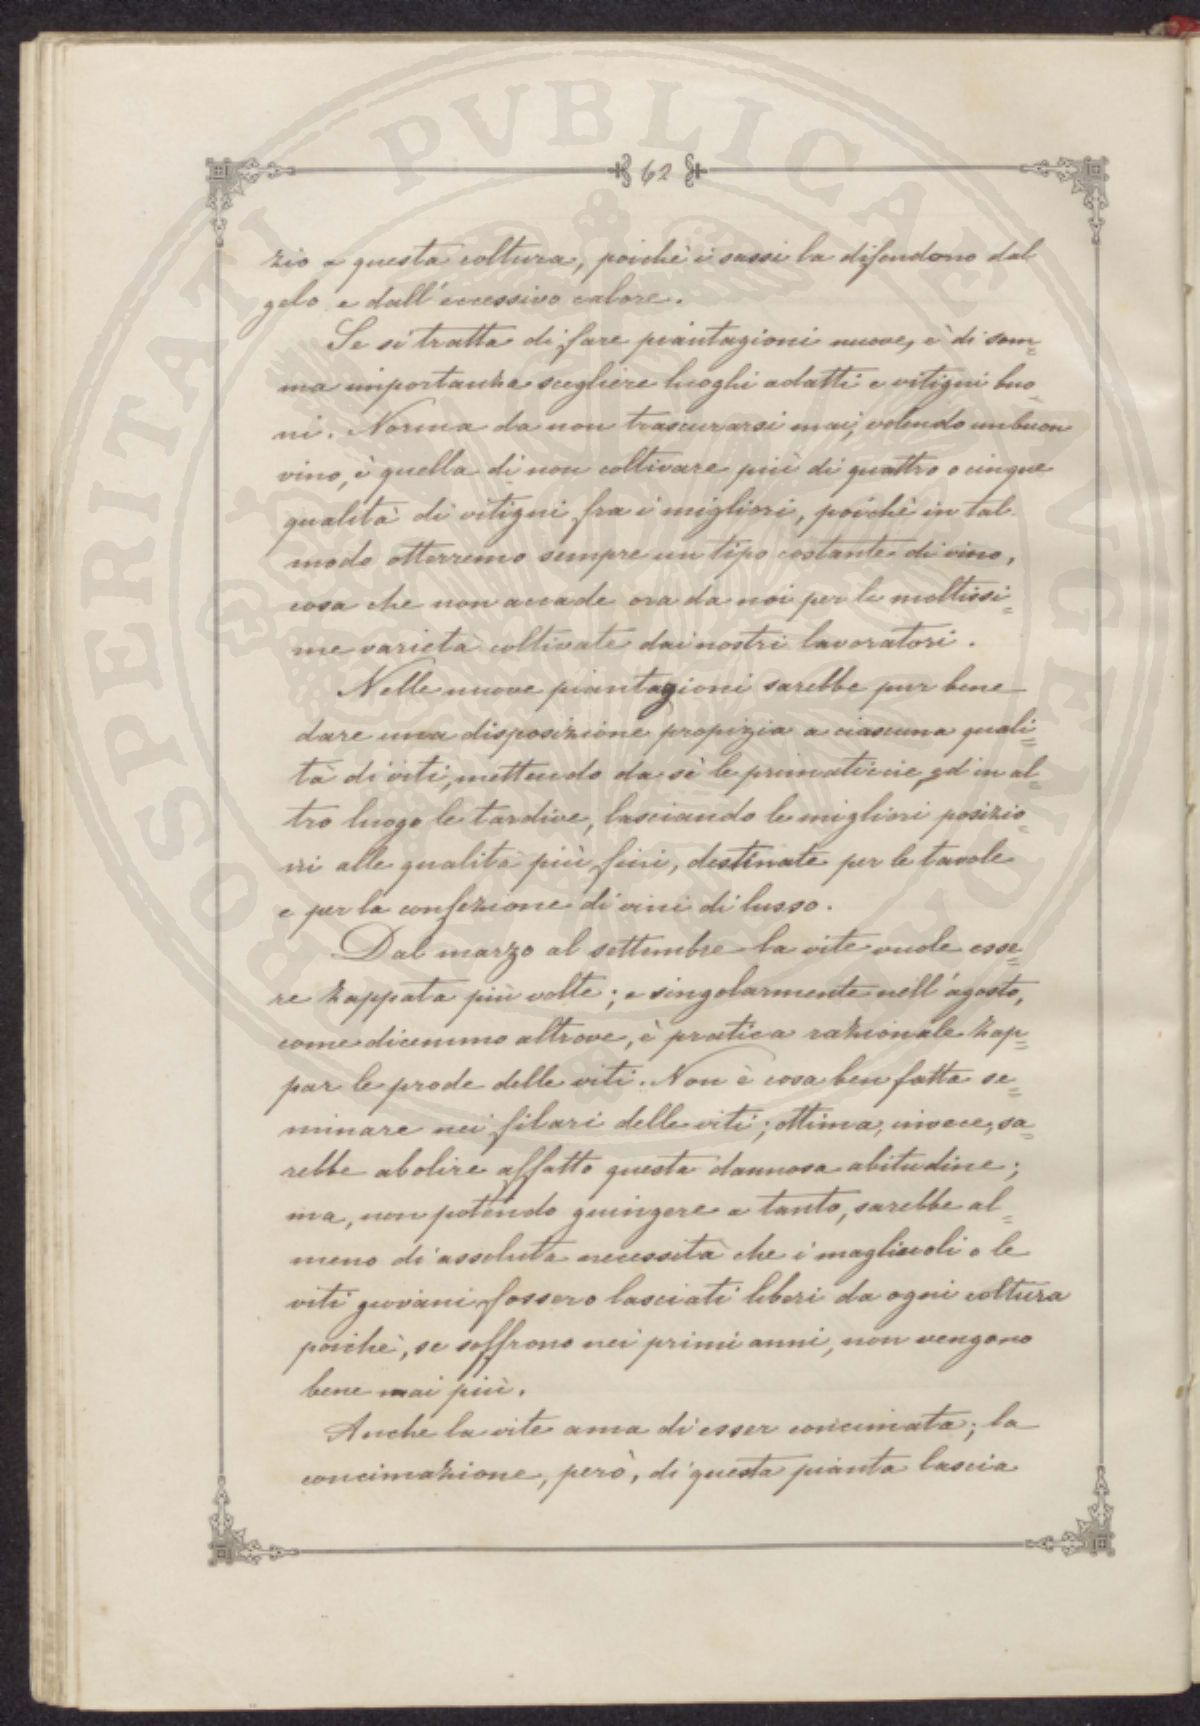 62
zio a questa coltura, poichè i sassi la difendono dal
gelo e dall'eccessivo calore.
Se si tratta di fare piantagioni nuove, è di som=
ma importanza scegliere luoghi adatti e vitigni buo=
ni. Norma da non trascurarsi mai, volendo un buon
vino, è quella di non coltivare più di quattro o cinque
qualità di vitigni fra i migliori, poichè in tal
modo otterremo sempre un tipo costante di vino,
cosa che non accade ora da noi per le moltissi=
me varietà coltivate dai nostri lavoratori.
Nelle nuove piantagioni sarebbe pur bene
dare una disposizione propizia a ciascuna quali=
tà di viti, mettendo da sè le primaticcie, ed in al=
tro luogo le tardive, lasciando le migliori posizio=
ni alle qualità più fini, destinate per le tavole
e per la confezione di vini di lusso.
Dal marzo al settembre la vite vuole esse=
re zappata più volte; e singolarmente nell'agosto,
come dicemmo altrove, è pratica razionale zap=
par le prode delle viti. Non è cosa ben fatta se=
minare nei filari delle viti; ottima, invece, sa=
rebbe abolire affatto questa dannosa abitudine;
ma, non potendo giungere a tanto, sarebbe al=
meno di assoluta necessità che i magliuoli o le
viti giovani fossero lasciati liberi da ogni coltura
poichè, se soffrono nei primi anni, non vengono
bene mai più.
Anche la vite ama di esser concimata; la
concimazione, però, di questa pianta lascia
PROSPERITATI PVBLICAE AVGENDAE